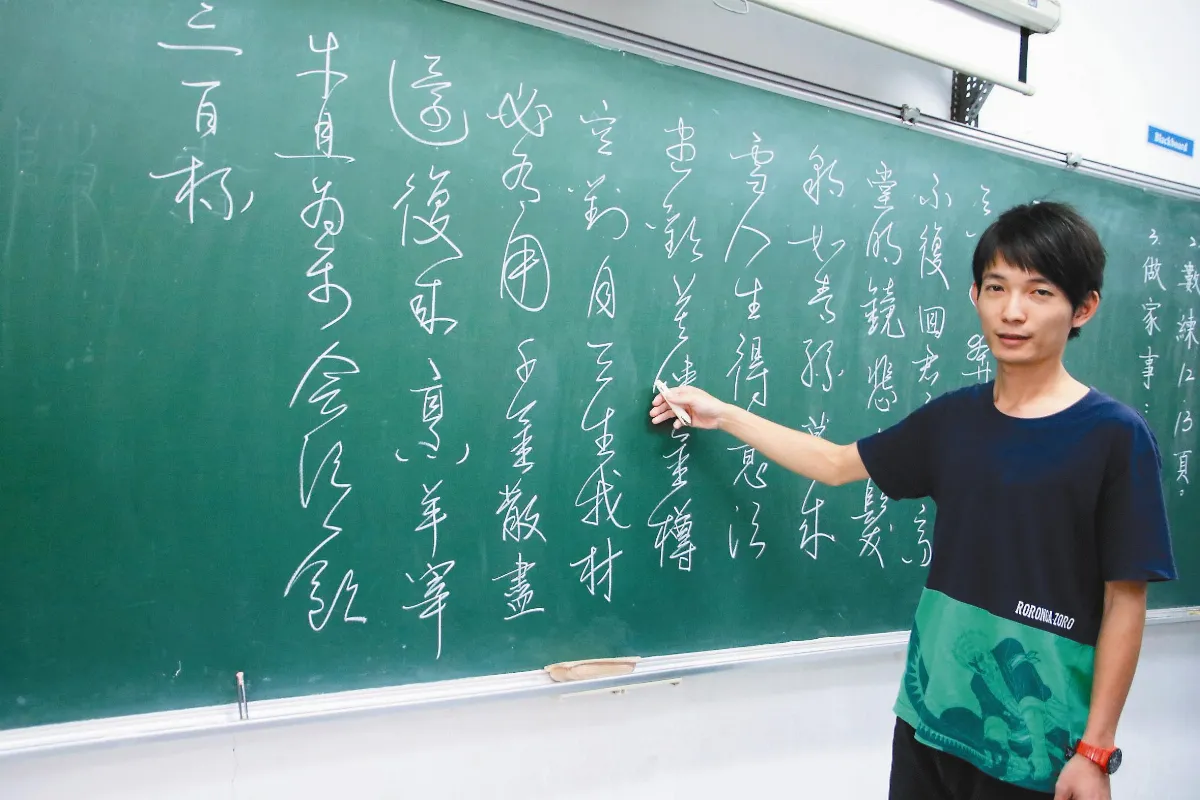 2.數練12.13頁。
3.做家事:
奔
不復回君高
堂明鏡悲髮
朝如青絲暮成
雪人生得意須
盡歡莫使金樽
空對月天生我材
必有用千金散盡
還復來烹羊宰
牛且為樂會須一飲
三百杯
RORONOA ZORO
Blackboard